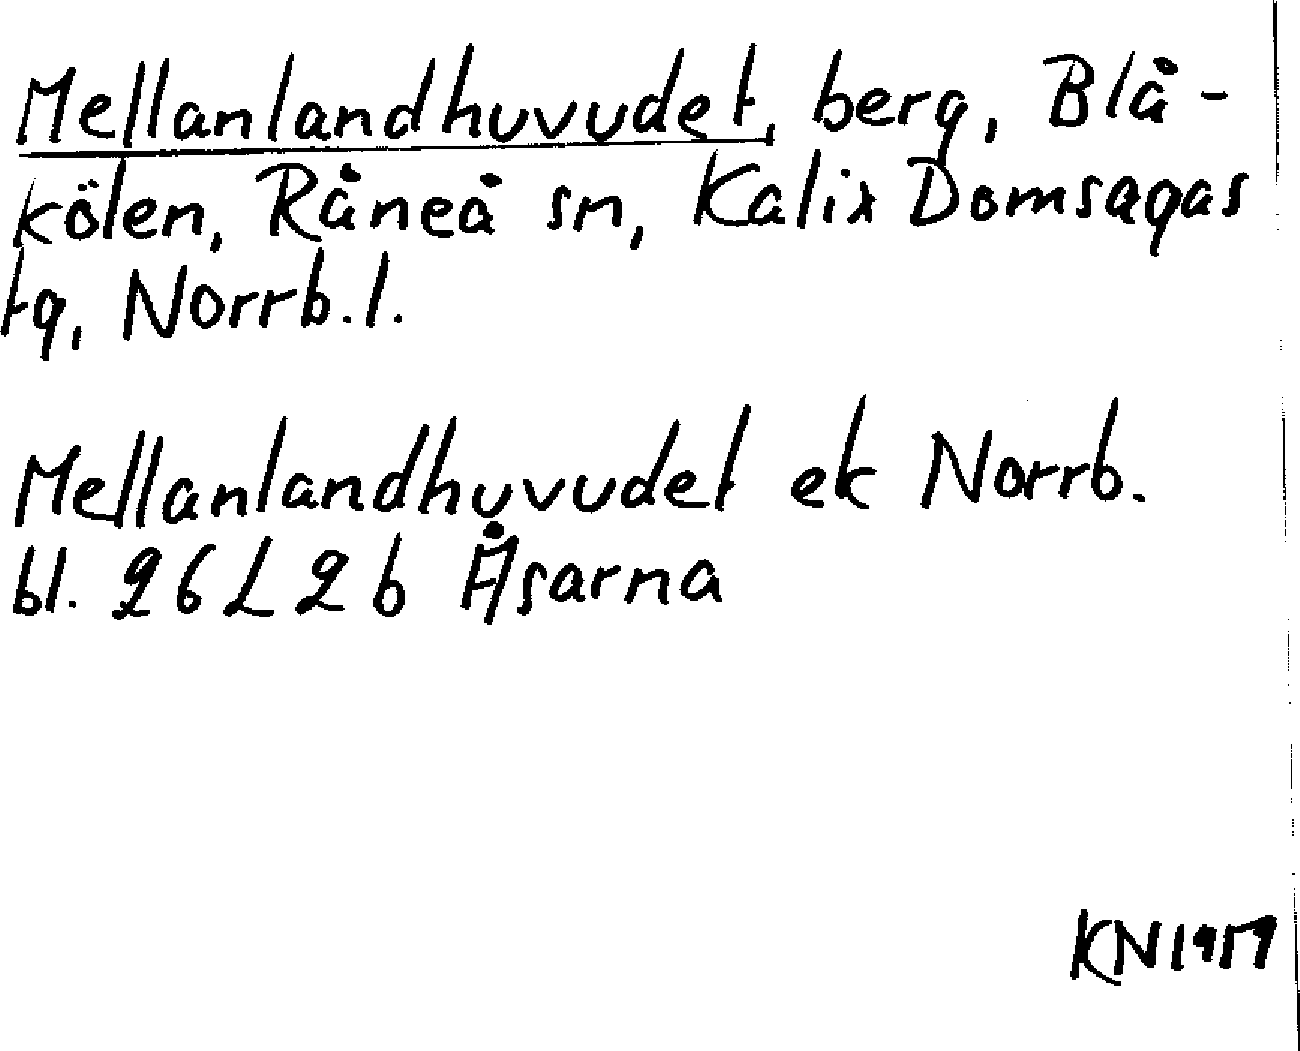 Mellanlandhuvudet, berg, Blå-
kölen, Råneå sn, Kalix Domsagas
tg, Norrb. l.
Mellanlandhuvudet ek Norrb.
bl. 26 L 2 b Åsarna
KN